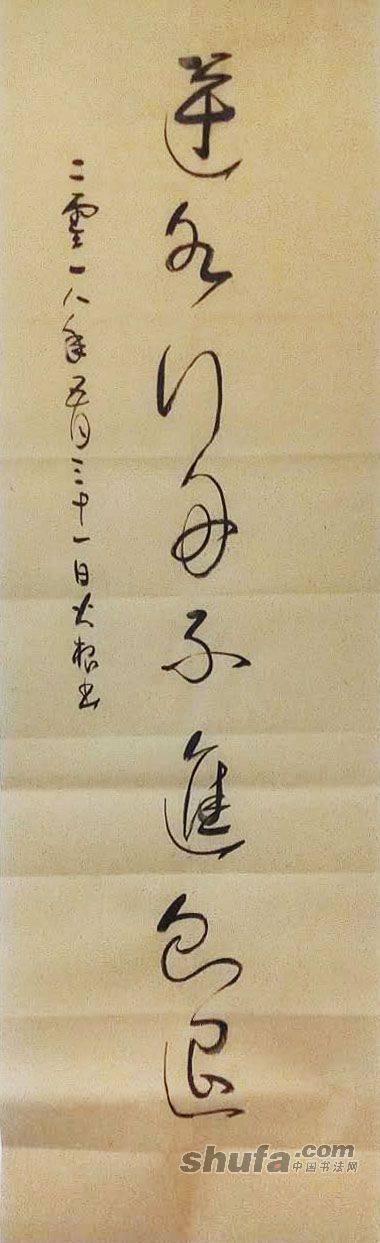 逆水行舟不進則退
二零一八年五月三十一日火根书
shufa.com
中国书法网